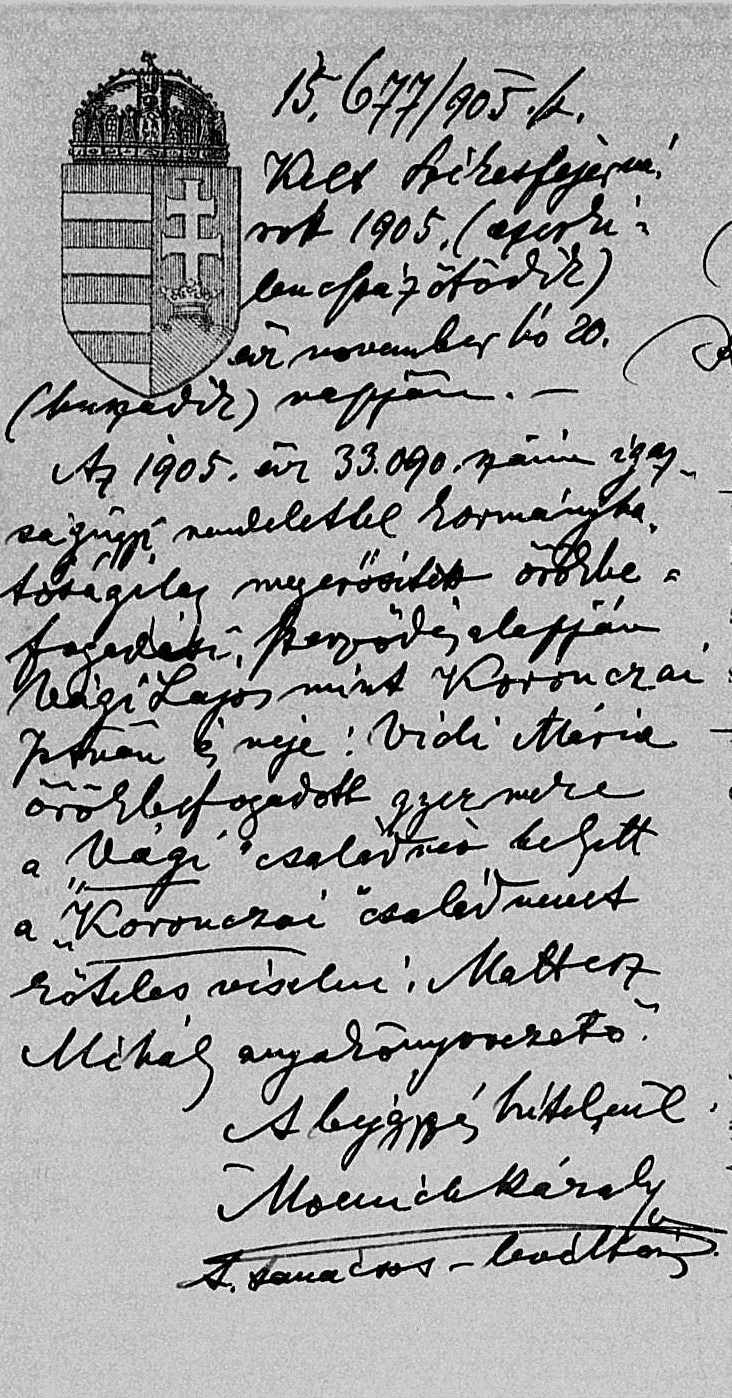 15.677/905. k.
Kelt Székesfejérvá-
rott 1905. (ezerki-
lenczszázötödik)
évi november hó 20.
(huszadik) napján. —
Az 1905. évi 33.090. számu igaz-
ságügyi rendelettel kormányha-
tóságilag megerősített örökbe-
fogadási szerződés alapján
Vági Lajos mint Koronczai
István és neje: Vidi Mária
örökbefogadott gyermeke
a "Vági" családnév helyett
a "Koronczai" családnevet
köteles viselni. Mattesz
Mihály anyakönyvvezető.
A bejegyzés hiteléül.
Károly